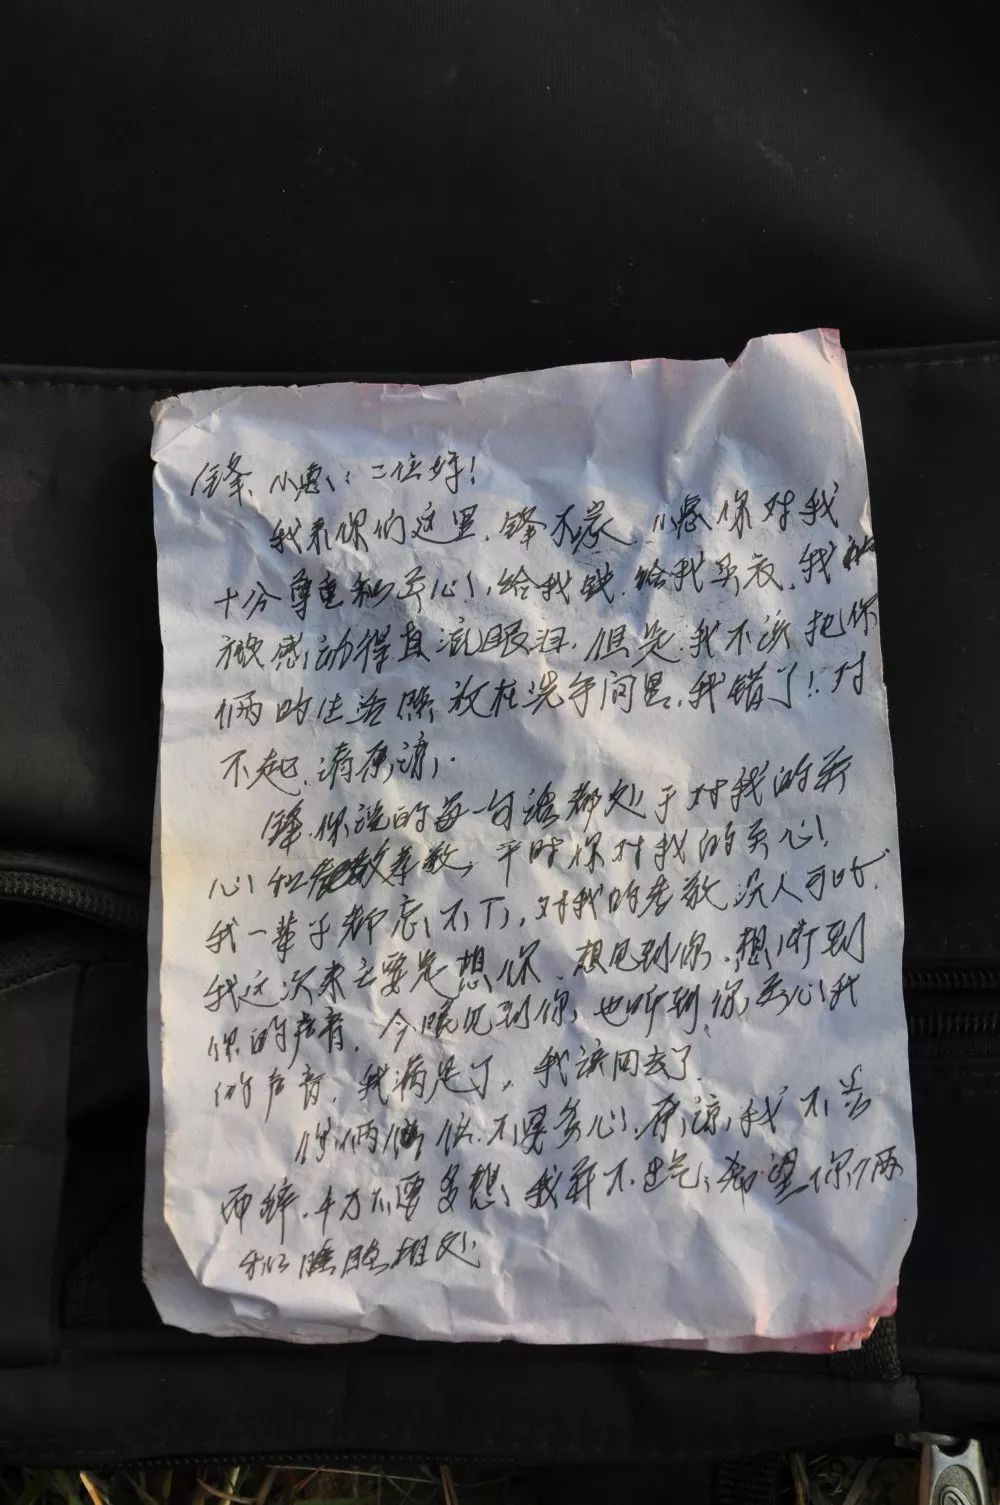 锋、小惠：二位好！
我来你们这里，锋不忘，小惠你对我
十分尊重和关心，给我钱，给我买衣，我
被感动得直流眼泪，但是，我不该把你
俩的生活照放在洗手间里，我错了！对
不起，请原谅，
锋，你说的每一句话都处于对我的关
心和孝敬，平时你对我的关心！
我一辈子都忘不了，对我的孝敬没人可比，
我这次来主要是想你，想见到你，想听到
你的声音，今眼见到你，也听到你关心我
的声音，我满足了，我该回去了。
你俩 不要多心，原谅我不告
而辞，千万不要多想，我并不生气，希望你俩
和睦相处